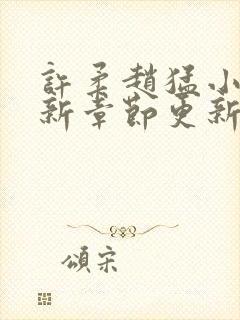 許柔趙猛小
新章節更新
頌宋